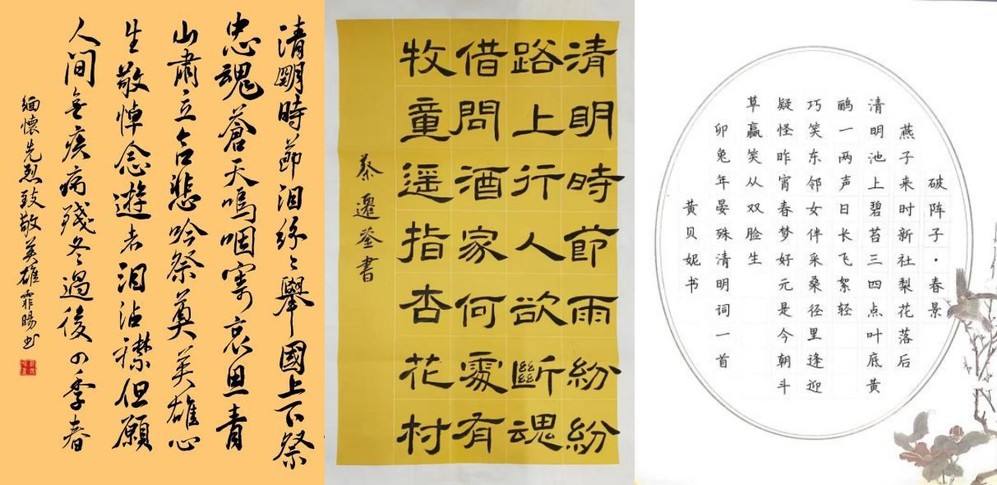 清明時節泪絲々舉國上下祭
忠魂蒼天鳴咽寄哀思青
山肅立含悲吟祭奠英雄心
生敬悼念遊者泪沾襟但願
人间無疾病殘冬過後四季春
緬懷先烈致敬英雄霏暘书
清明時節雨紛紛
路上行人欲斷魂
借問酒家何處有
牧童遥指杏花村
蔡邊鉴書
破阵子·春景
燕子来时新社梨花落后
清明池上碧苔三四点叶底黄
鹂一两声日长飞絮轻
巧笑东邻女伴采桑径里逢迎
疑怪昨宵春梦好元是今朝斗
草赢笑从双脸生
卯兔年晏殊清明词一首
黄贝妮书